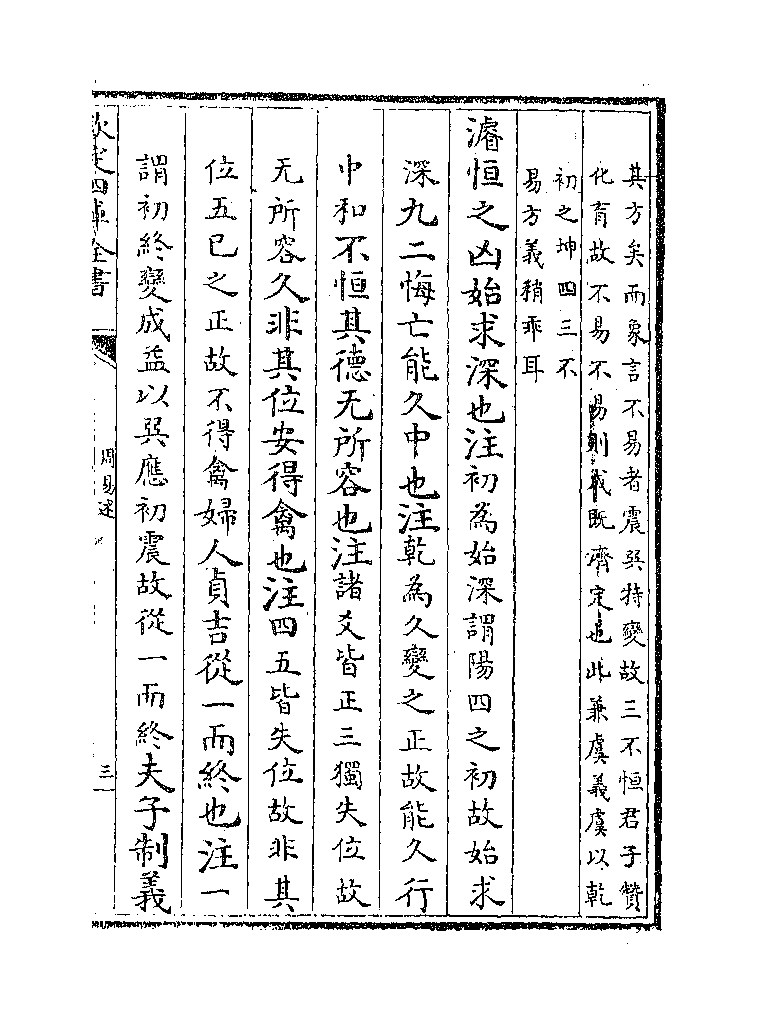 其方矣而象言不易者震巽特變故三不恒君子贊
化育故不易不易則成既濟定也此兼虞義虞以乾
初之坤四三不
易方義稍乖耳
濬恒之凶始求深也注初為始深謂陽四之初故始求
深九二悔亡能久中也注乾為久變之正故能久行
中和不恒其德无所容也注諸爻皆正三獨失位故
无所容久非其位安得禽也注四五皆失位故非其
位五已之正故不得禽婦人貞吉從一而終也注一
謂初終變成益以巽應初震故從一而終夫子制義
欽定四庫全書
周易述
三